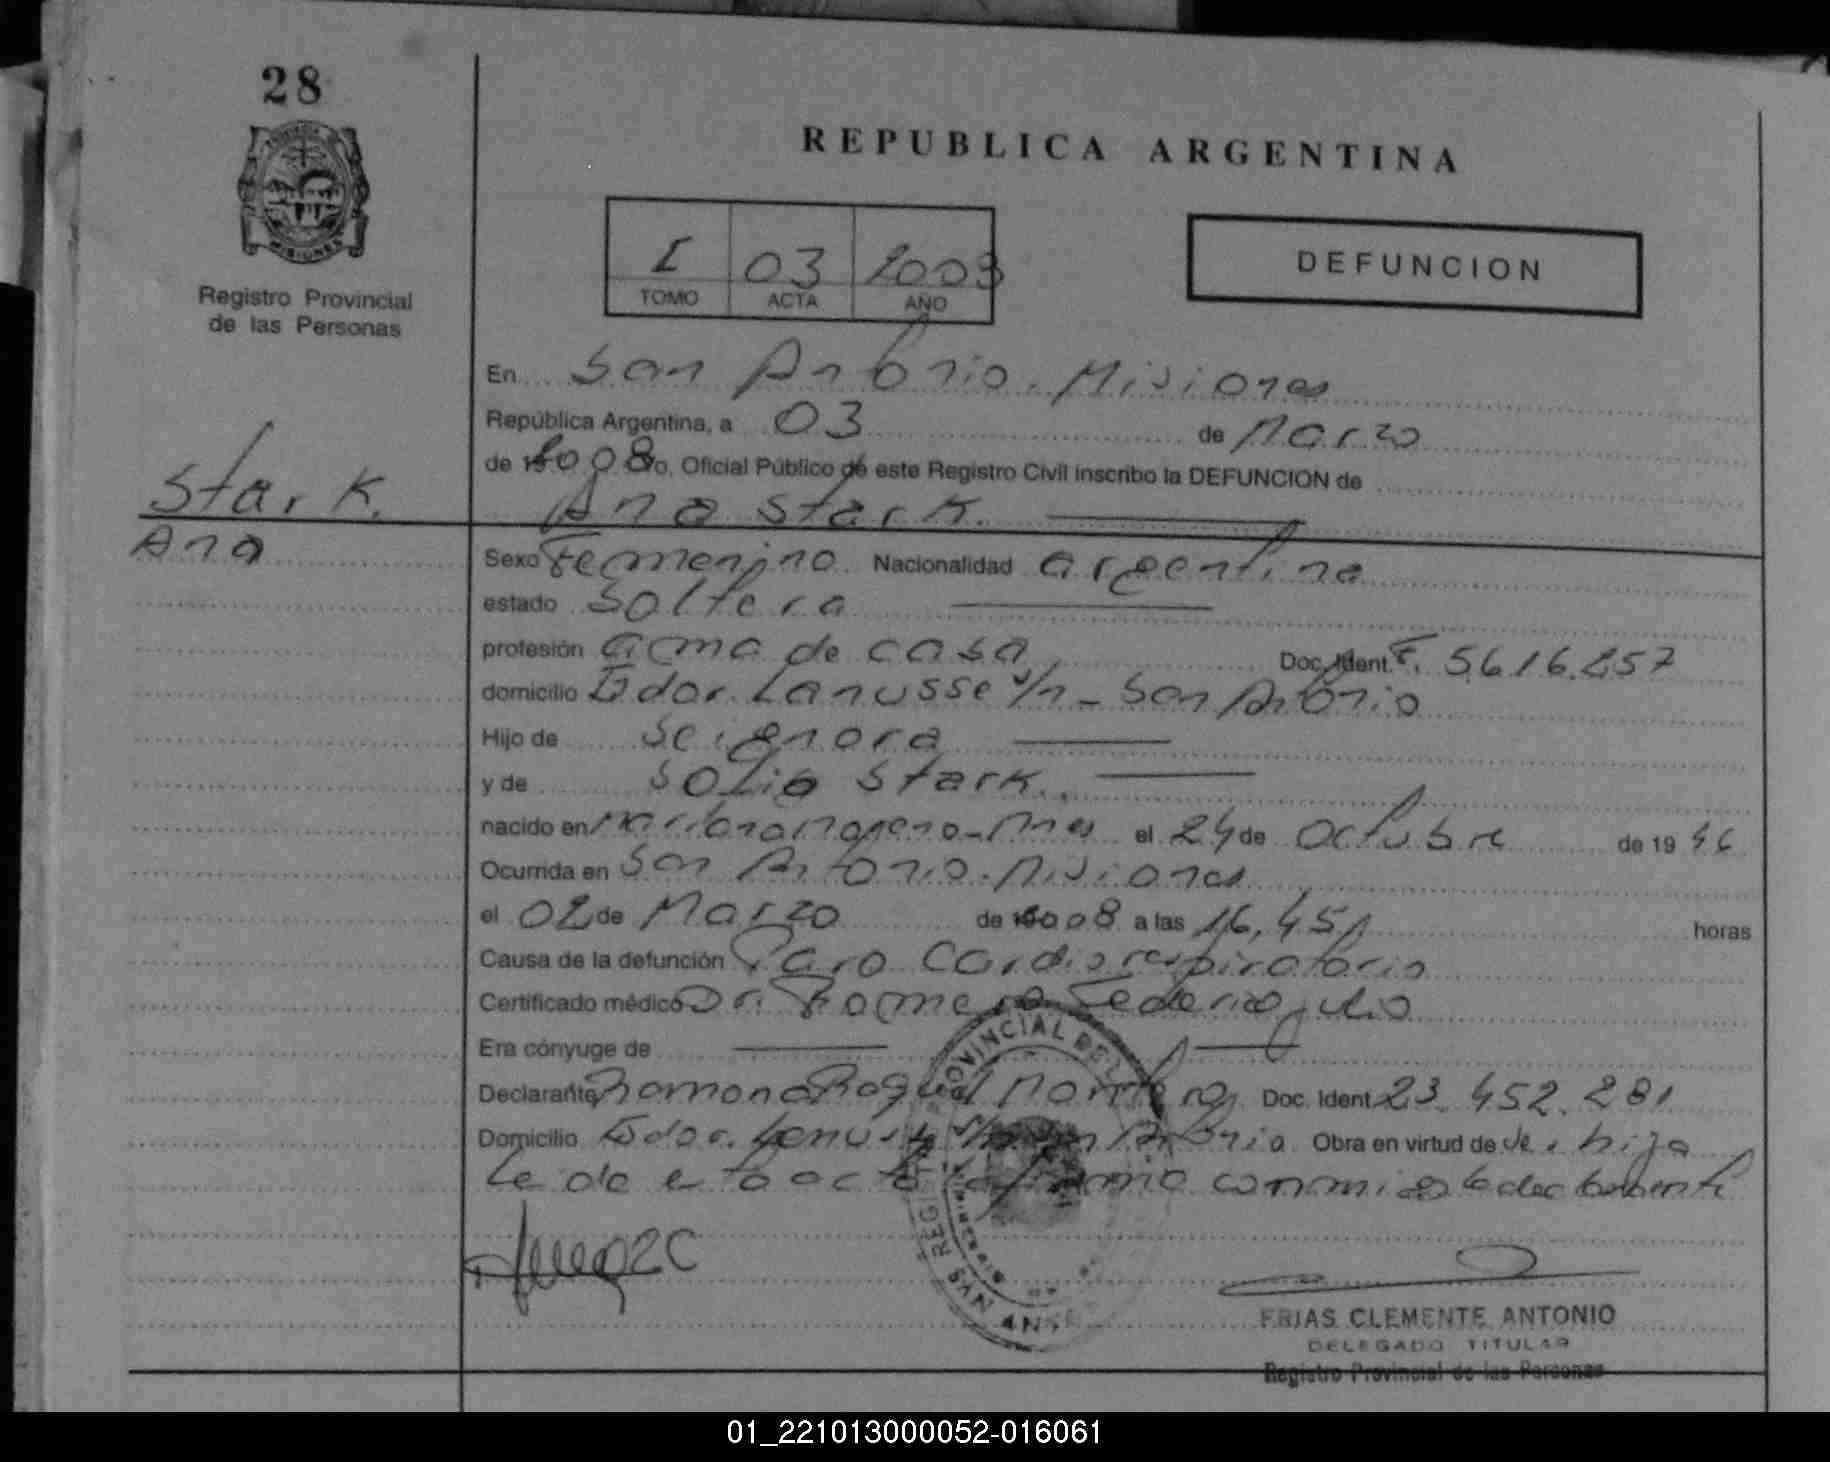 28
MISIONES
Registro Provincial
de las Personas
REPUBLICA ARGENTINA
I 03 2008
TOMO ACTA AÑO
DEFUNCION
En San Antonio. Misiones
República Argentina, a 03 de Marzo
de 2008 yo, Oficial Público de este Registro Civil inscribo la DEFUNCION de
Ana Stark.
Stark.
Ana
Sexo Femenino Nacionalidad argentina
estado Soltera
profesión ama de casa Doc. Ident. F. 5616.257
domicilio Gdor. Lanusse s/n - San Antonio
Hijo de Se ignora
y de Sofia Stark.
nacido en Mariano Moreno - Mnes el 24 de Octubre de 19 46
Ocurrida en San Antonio. Misiones
el 02 de Marzo de 2008 a las 16,45 horas
Causa de la defunción Paro Cardiorespiratorio
Certificado médico Dr. Romero Federico Julio
Era cónyuge de
Declarante Ramona Raquel Doc. Ident. 23.452.281
Domicilio Gdor. Lanusse San Antonio Obra en virtud de ser hija
Leida esta acta la firma conmigo la declarante
FRIAS CLEMENTE ANTONIO
DELEGADO TITULAR
Registro Provincial de las Personas
01_221013000052-016061